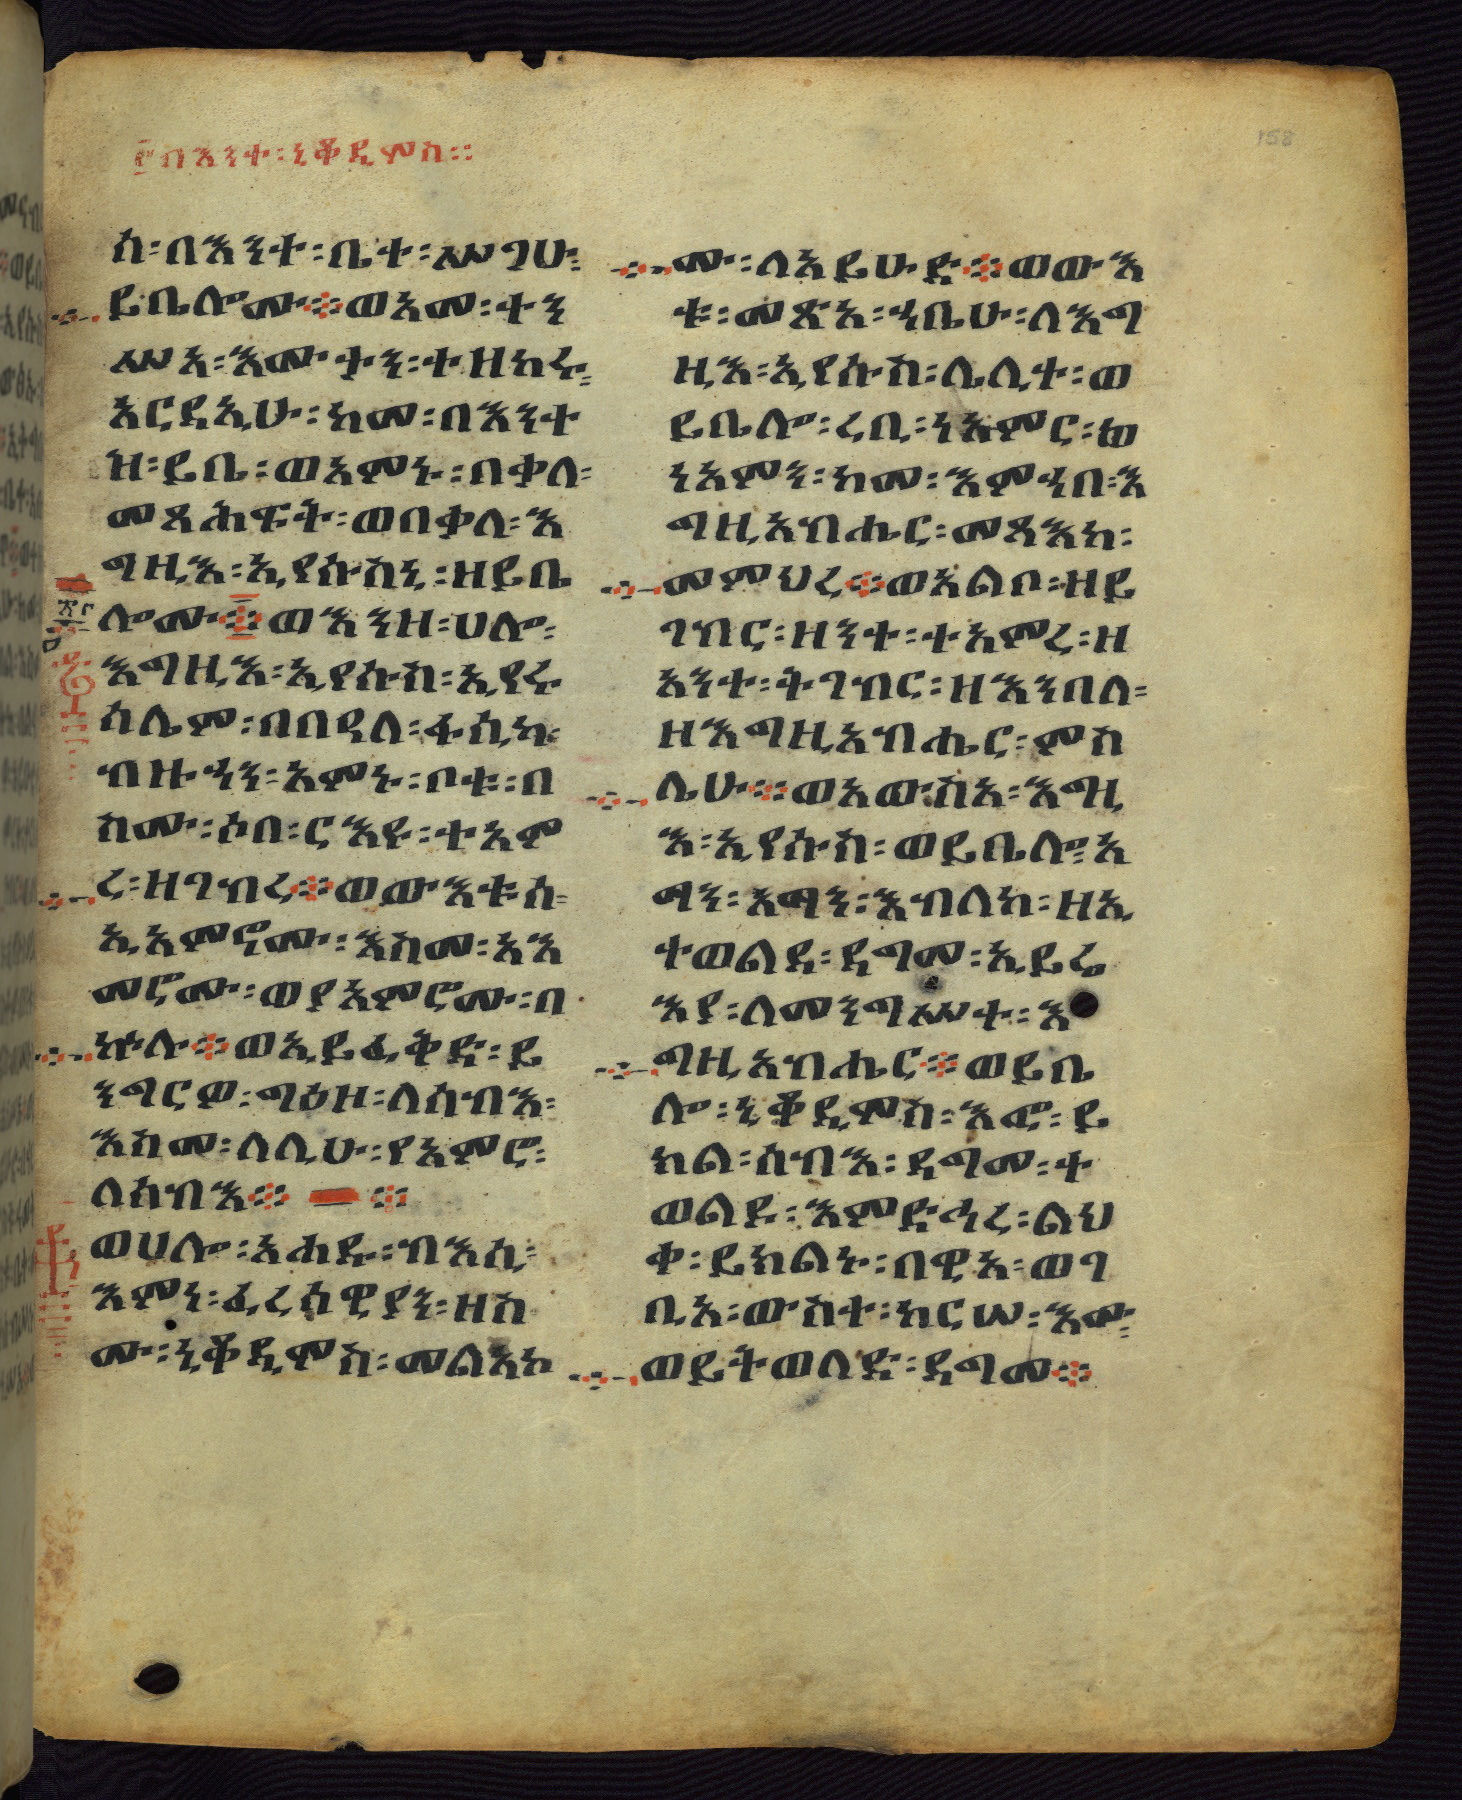 ፪በእንተ፡ኒቆዲሞስ፡፡
158
ሰ፡በእንተ፡ቤተ፡ሥገሁ፡
ይቤሎሙ፨ወአመ፡ተን
ሥአ፡እሙታን፡ተዘከሩ፡
አርዳኢሁ፡ከመ፡በእንተ
ዝ፡ይቤ፡ወአምኑ፡በቃለ፡
መጻሕፍት፡ወበቃለ፡እ
ግዚእ፡ኢየሱስኒ፡ዘይቤ
ሎሙ፨ወእንዘ፡ሀሎ፡
እግዚእ፡ኢየሱስ፡ኢየሩ
ሳሌም፡በበዓለ፡ፋሲካ፡
ብዙኃን፡አምኑ፡ቦቱ፡በ
ስሙ፡ሶበ፡ርእዩ፡ተአም
ረ፡ዘገብረ፨ወውእቱሰ፡
ኢአምኖሙ፡እስመ፡አእ
መሮሙ፡ወያአምሮሙ፡በ
ኵሉ፨ወኢይፈቅድ፡ይ
ንግርዎ፡ግዕዘ፡ለሰብእ፡
እስመ፡ለሊሁ፡የአምሮ፡
ለሰብእ፨ ፨
ወሀሎ፡አሐዱ፡ብእሲ፡
እምነ፡ፈረሳዊያን፡ዘስ
ሙ፡ኒቆዲሞስ፡መልአኮ
ሙ፡ለአይሁድ፨ወውእ
ቱ፡መጽአ፡ኃቤሁ፡ለእግ
ዚእ፡ኢየሱስ፡ሌሊተ፡ወ
ይቤሎ፡ረቢ፡ነአምር፡ወ
ነአምን፡ከመ፡እምኃበ፡እ
ግዚአብሔር፡መጻእከ፡
መምህረ፨ወአልቦ፡ዘይ
ገብር፡ዘንተ፡ተአምረ፡ዘ
አንተ፡ትገብር፡ዘእንበለ፡
ዘእግዚአብሔር፡ምስ
ሌሁ፨ወአውሥአ፡እግዚ
እ፡ኢየሱስ፡ወይቤሎ፡አ
ማን፡አማን፡እብለከ፡ዘኢ
ተወልደ፡ዳግመ፡ኢይሬ
እያ፡ለመንግሥተ፡እ
ግዚአብሔር፨ወይቤ
ሎ፡ኒቆዲሞስ፡እፎ፡ይ
ክል፡ሰብእ፡ዳግመ፡ተ
ወልዶ፡እምድኃረ፡ልህ
ቀ፡ይክልኑ፡በዊአ፡ወገ
ቢአ፡ውስተ፡ከርሠ፡እሙ፡
ወይትወለድ፡ዳግመ፨